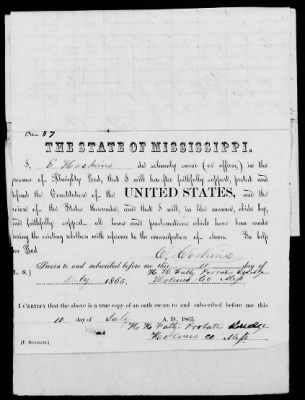 No 57
THE STATE OF MISSISSIPPI.
I, C Hoskins do solemnly swear (or affirm,) in the
presence of Almighty God, that I will hereafter faithfully support, protect and
defend the Constitution of the UNITED STATES, and the
Union of the States thereunder, and that I will, in like manner, abide by,
and faithfully support all laws and proclamations which have been made
during the existing rebellion with reference to the emancipation of slaves. So help
me God.
C, Hoskins
Sworn to and subscribed before me this 10 day of
[L. S.] July 1865. Probate
Holmes Co Miss
I Certify that the above is a true copy of an oath sworn to and subscribed before me this
10 day of July A. D. 1865.
Probate Judge
Holmes co Miss